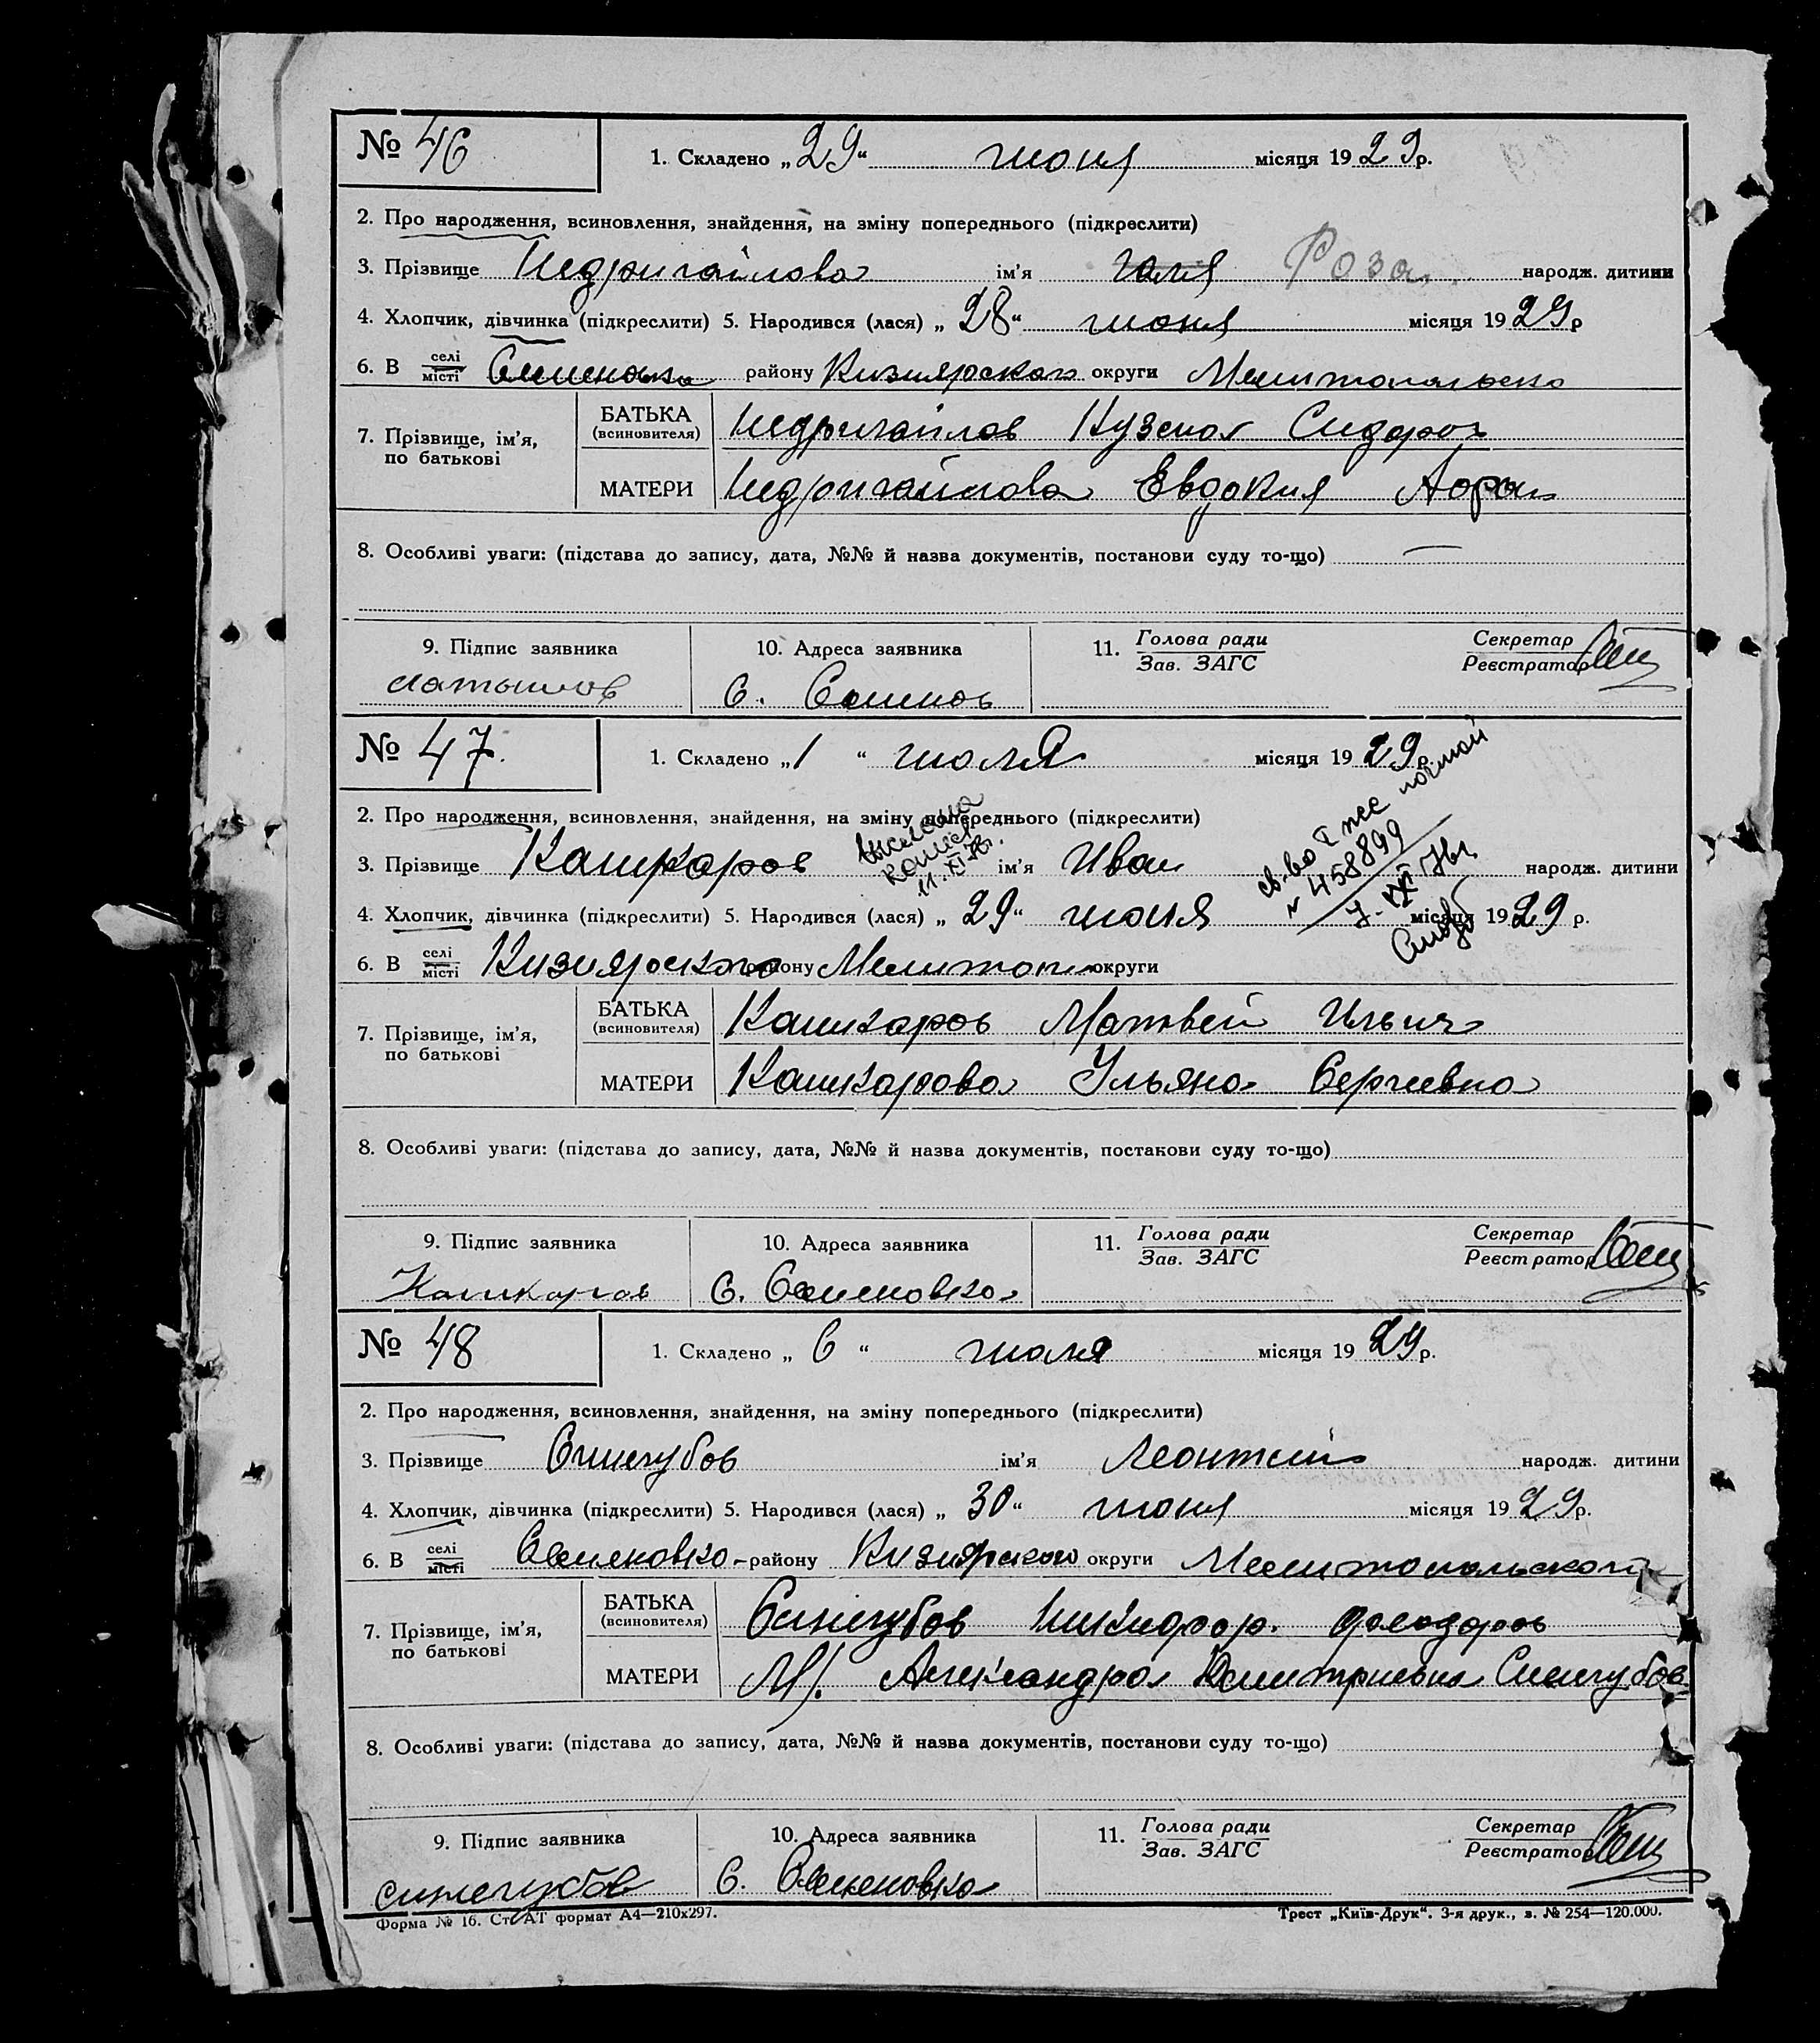 № 46
1. Складено „29“ июня місяця 1929р.
2. Про народження, всиновлення, знайдення, на зміну попереднього (підкреслити)
3. Прізвище Недригайлова ім'я Галя Роза народж. дитини
4. Хлопчик, дівчинка (підкреслити) 5. Народився (лася) „28“ июня місяця 1929р
6. В селі місті Семеновка району Кизиярского округи Мелитопольско
7. Прізвище, ім'я, по батькові
БАТЬКА (всиновителя) Недригайлов Кузьма Сидоров
МАТЕРИ Недригайлова Евдокия
8. Особливі уваги: (підстава до запису, дата, №№ й назва документів, постанови суду то-що) —
9. Підпис заявника 10. Адреса заявника 11. Голова ради Секретар
Зав. ЗАГС Реєстратор
С. Семенов
№ 47.
1. Складено „1“ июля місяця 1929р.
2. Про народження, всиновлення, знайдення, на зміну попереднього (підкреслити)
3. Прізвище Кашкаров ім'я Иван народж. дитини
выслана
11.XI.76г.
св-во I же почтой
№ 458899
4. Хлопчик, дівчинка (підкреслити) 5. Народився (лася) „29“ июня місяця 1929 р.
6. В селі місті Кизиярского району Мелитоп округи
7. Прізвище, ім'я, по батькові
БАТЬКА (всиновителя) Кашкаров Матвей Ильич
МАТЕРИ Кашкарова Ульяна Сергеевна
8. Особливі уваги: (підстава до запису, дата, №№ й назва документів, постанови суду то-що)
9. Підпис заявника 10. Адреса заявника 11. Голова ради Секретар
Зав. ЗАГС Реєстратор
Кашкаров С. Семеновка
№ 48
1. Складено „6“ июля місяця 1929р.
2. Про народження, всиновлення, знайдення, на зміну попереднього (підкреслити)
3. Прізвище Синегубов ім'я Леонтий народж. дитини
4. Хлопчик, дівчинка (підкреслити) 5. Народився (лася) „30“ июня місяця 1929р.
6. В селі місті Семеновка району Кизиярского округи Мелитопольского
7. Прізвище, ім'я, по батькові
БАТЬКА (всиновителя) Синегубов Никифор. Феодоров
МАТЕРИ М. Александра Дмитриевна Синегубов
8. Особливі уваги: (підстава до запису, дата, №№ й назва документів, постанови суду то-що)
9. Підпис заявника 10. Адреса заявника 11. Голова ради Секретар
Зав. ЗАГС Реєстратор
синегубов С. Семеновка
Форма № 16. Ст. АТ формат А4—210х297. Трест „Київ-Друк“. 3-я друк., з. № 254—120.000.